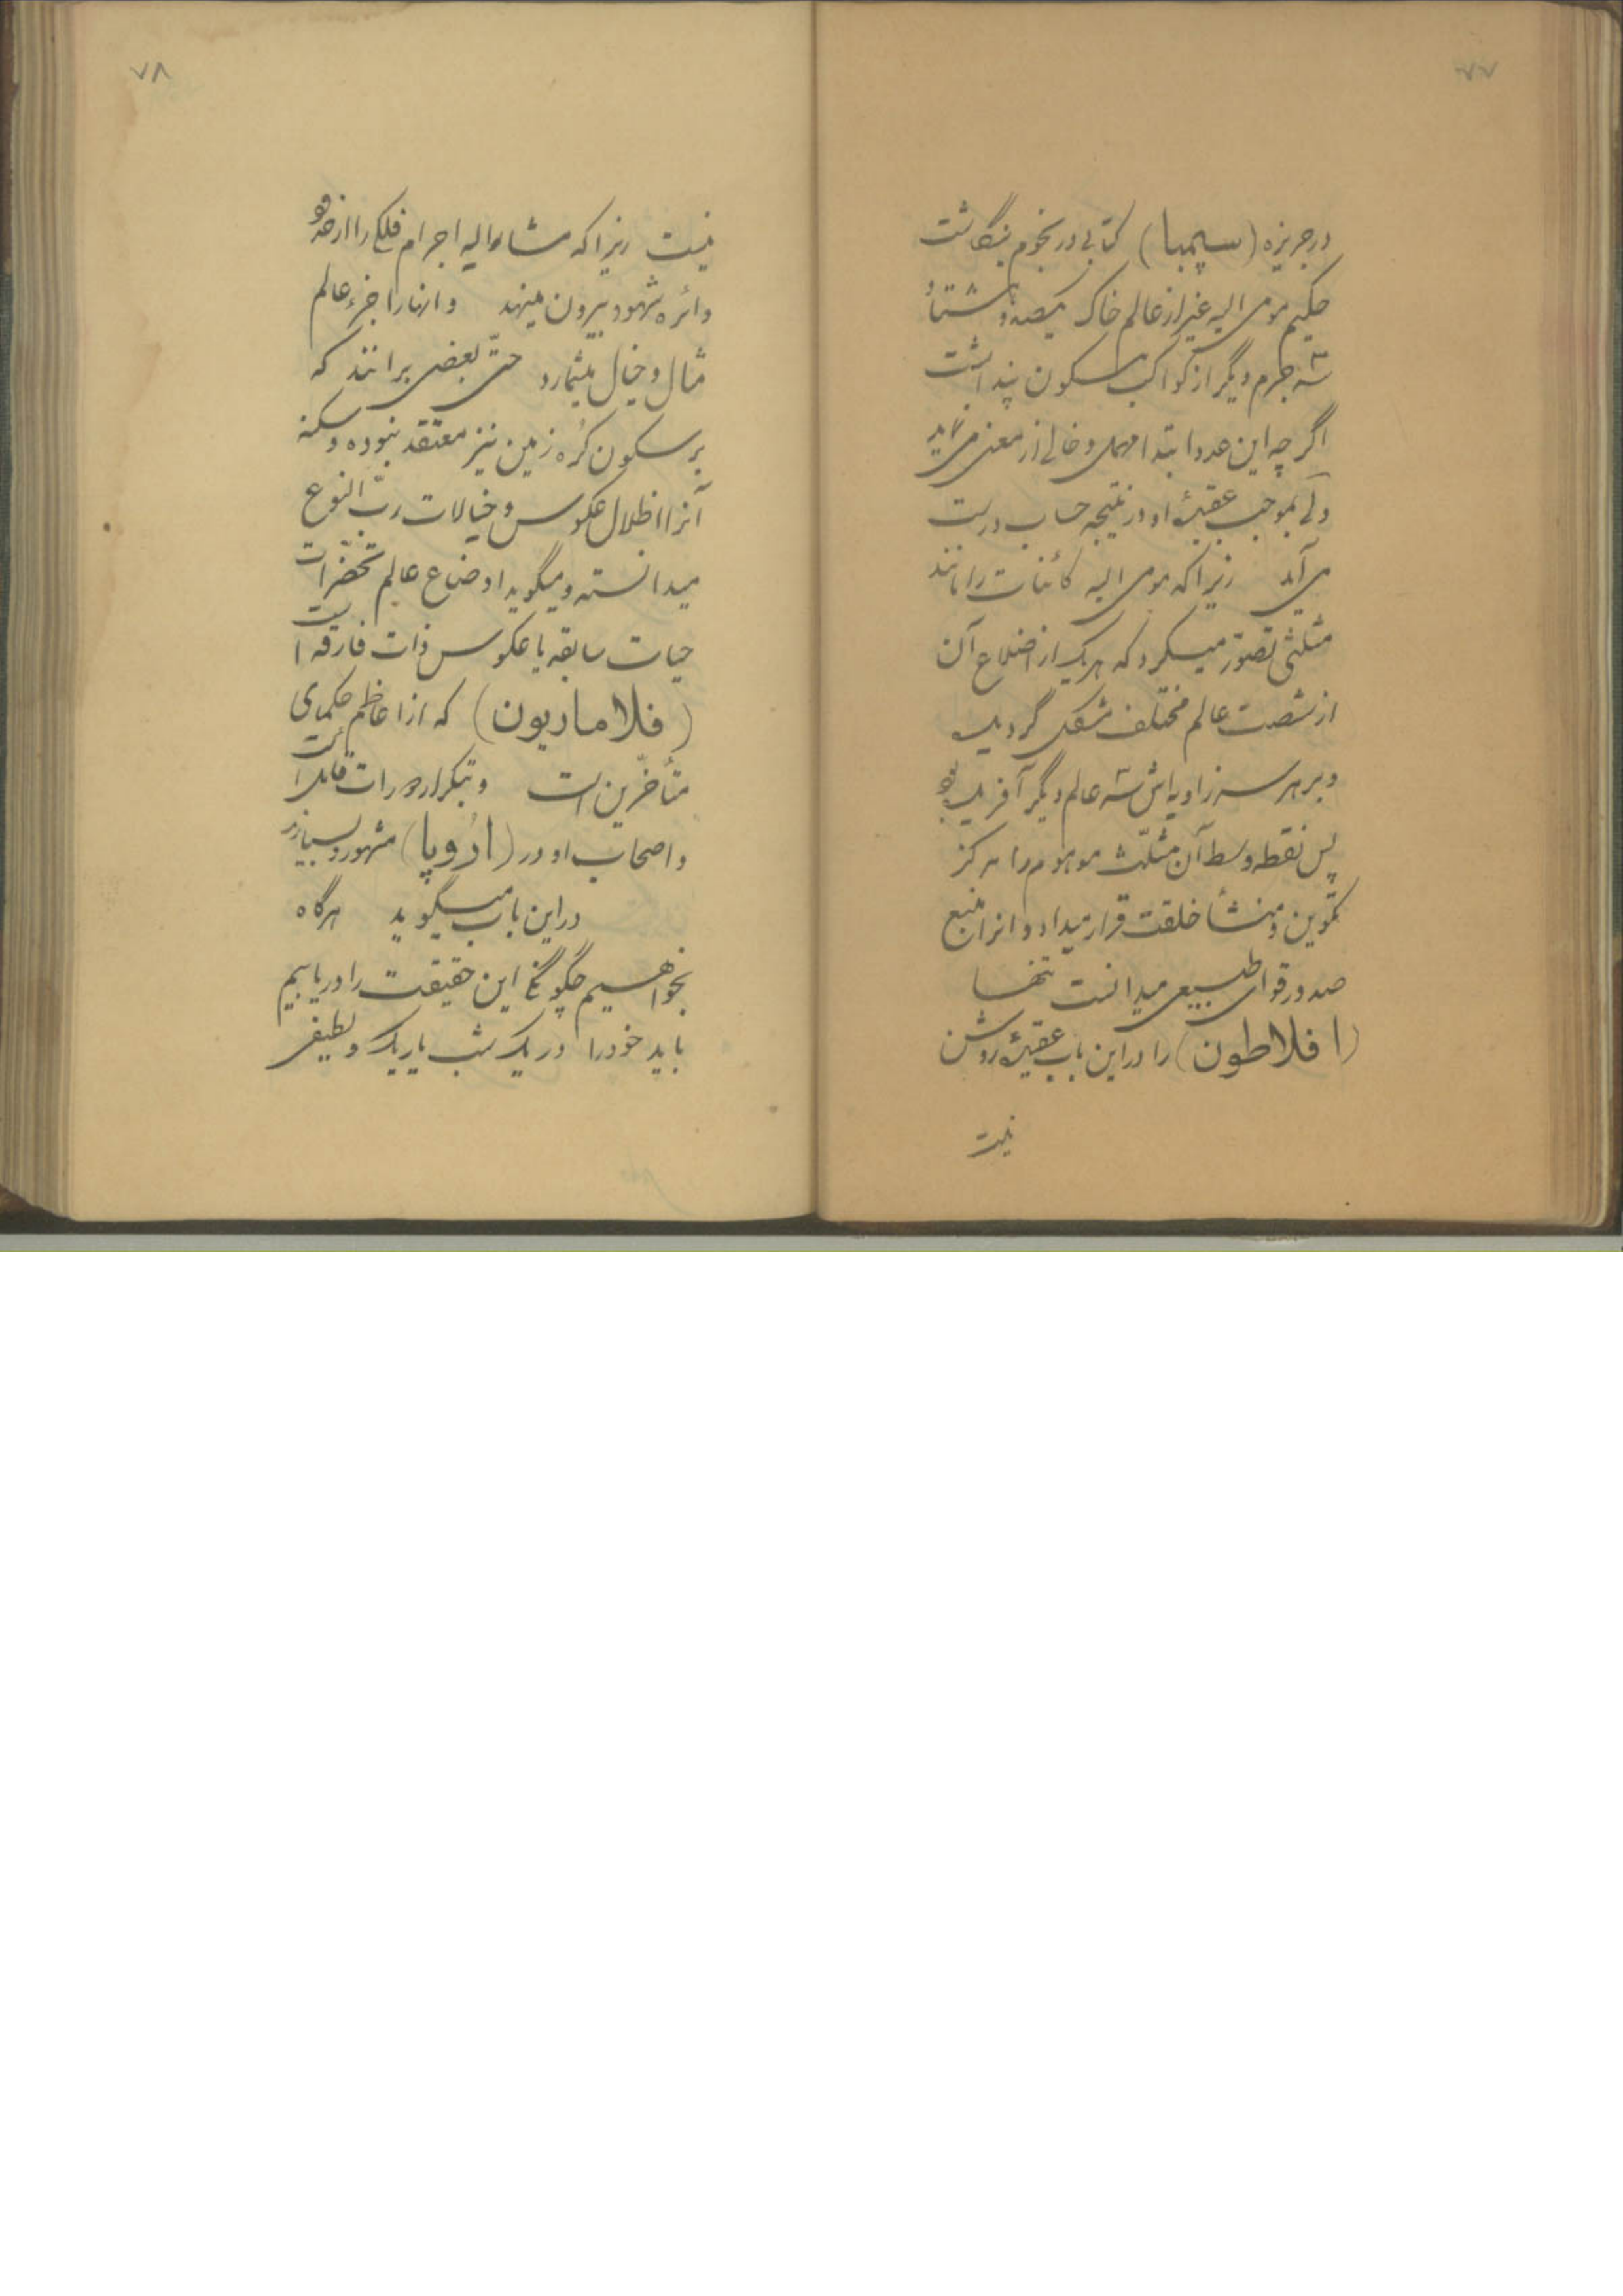 ۷۷
در جزیره (سیمبا) کتابی در نجوم بنگاشت
حکیم مومی الیه غیر از عالم خاک یکصد و هشتاد
سه جرم دیگر از کواکب مسکون پنداشت
اگر چه این عدد ابتدا مهمل و خالی از معنی می نماید
ولی بموجب عقیدۀ او در نتیجه حساب درست
می آید زیرا که مومی الیه کائنات را مانند
مثلثی تصوّر میکرد که هر یک از اضلاع آن
از شصت عالم مختلف مشکل گردیده
و بر هر سه زاویه اش سه عالم دیگر آفریده بود
پس نقطه وسط آن مثلّث موهوم را مرکز
تکوین و منشأ خلقت قرار میداد و انرا منبع
صدور قوای طبیعی میدانست تنها
(افلاطون) را در این باب عقیدۀ روشن
نیست
۷۸
نیست زیرا که مشار الیه اجرام فلکی را از خود
دائره شهود بیرون مینهد و انها را جزء عالم
مثال و خیال میشمارد حتّی بعضی برانند که
بر سکون کُره زمین نیز معتقد نبوده و سکنه
آنرا اظلال عکوس و خیالات ربّ النوع
میدانسته و میگوید اوضاع عالم تحضرات
حیات سابقه یا عکوس ذات فارقه است
(فلاماریون) که از اعاظم حکمای
متأخّرین است و بتکرار دورات قائل است
و اصحاب او در (اُروپا) مشهور و بسیارند
در این باب میگوید هرگاه
بخواهیم چگونگی این حقیقت را دریابیم
باید خود را در یک شب تاریک و لطیفی